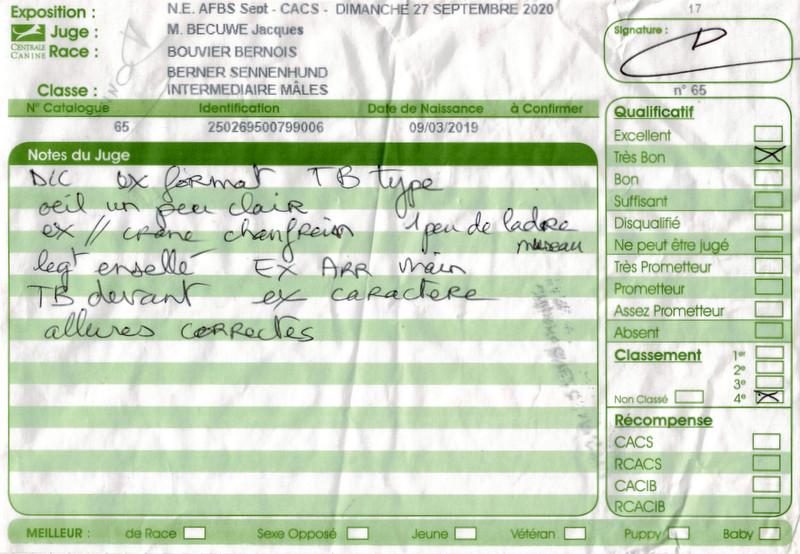 Exposition : N.E. AFBS Sept - CACS - DIMANCHE 27 SEPTEMBRE 2020
17
Juge : M. BECUWE Jacques
CENTRALE CANINE
Race : BOUVIER BERNOIS
BERNER SENNENHUND
Classe : INTERMEDIAIRE MÂLES
Signature :
n° 65
N° Catalogue Identification Date de Naissance à Confirmer
65 250269500799006 09/03/2019
Notes du Juge
DIC ex format TB type
oeil un peu clair
ex // crane chanfrein 1 peu de ladre
museau
legt ensellé EX ARR main
TB devant ex caractere
allures correctes
Qualificatif
Excellent
Très Bon
Bon
Suffisant
Disqualifié
Ne peut être jugé
Très Prometteur
Prometteur
Assez Prometteur
Absent
Classement 1er
2e
3e
Non Classé 4e
Récompense
CACS
RCACS
CACIB
RCACIB
MEILLEUR : de Race Sexe Opposé Jeune Vétéran Puppy Baby